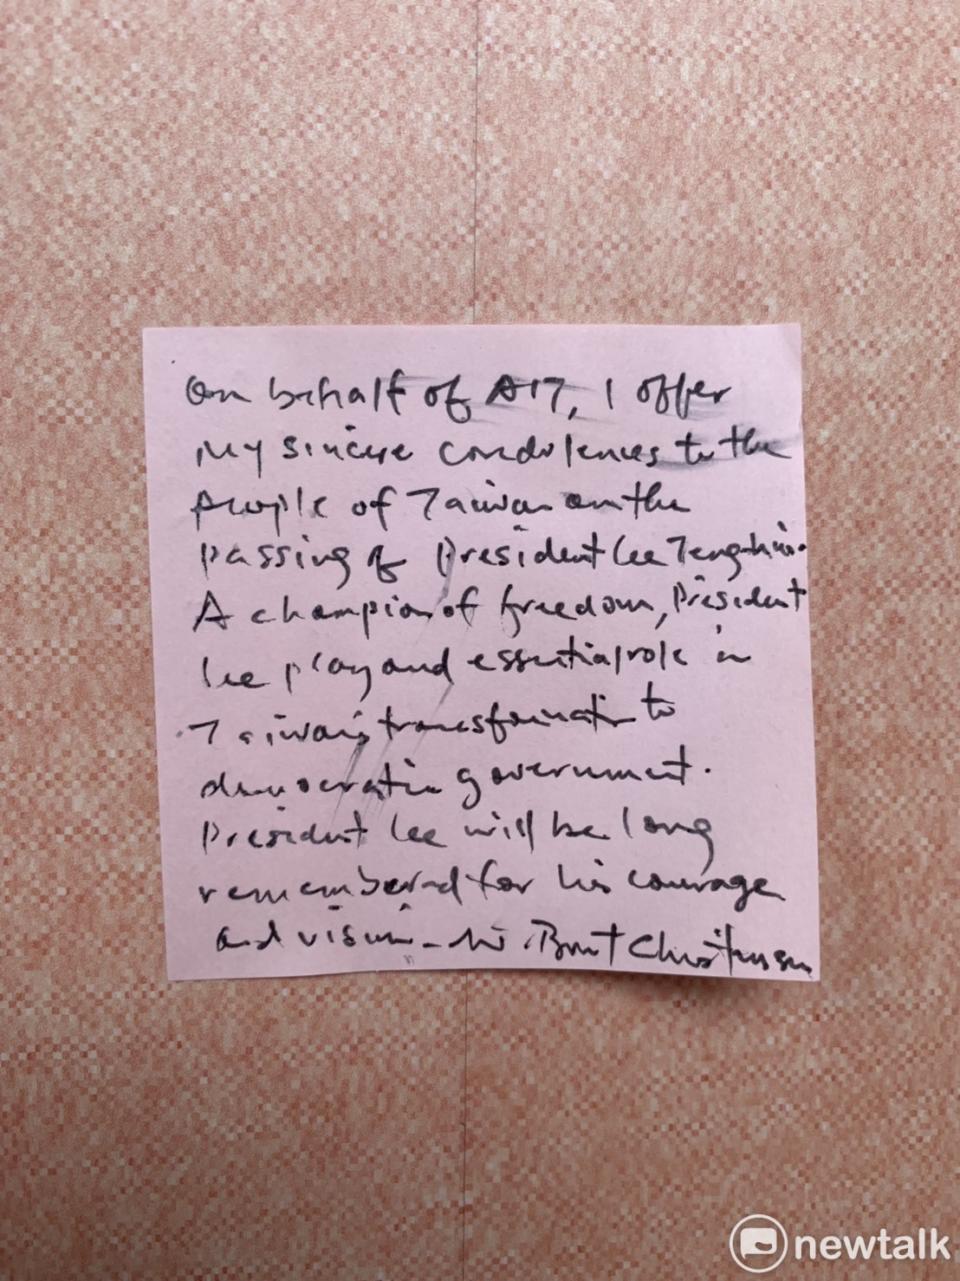 On behalf of AIT, I offer
my sincere condolences to the
people of Taiwan on the
passing of President Lee Teng-hui.
A champion of freedom, President
Lee play and essential role in
Taiwan's transformation to
democratic government.
President Lee will be long
remembered for his courage
and vision - Brent Christensen
newtalk